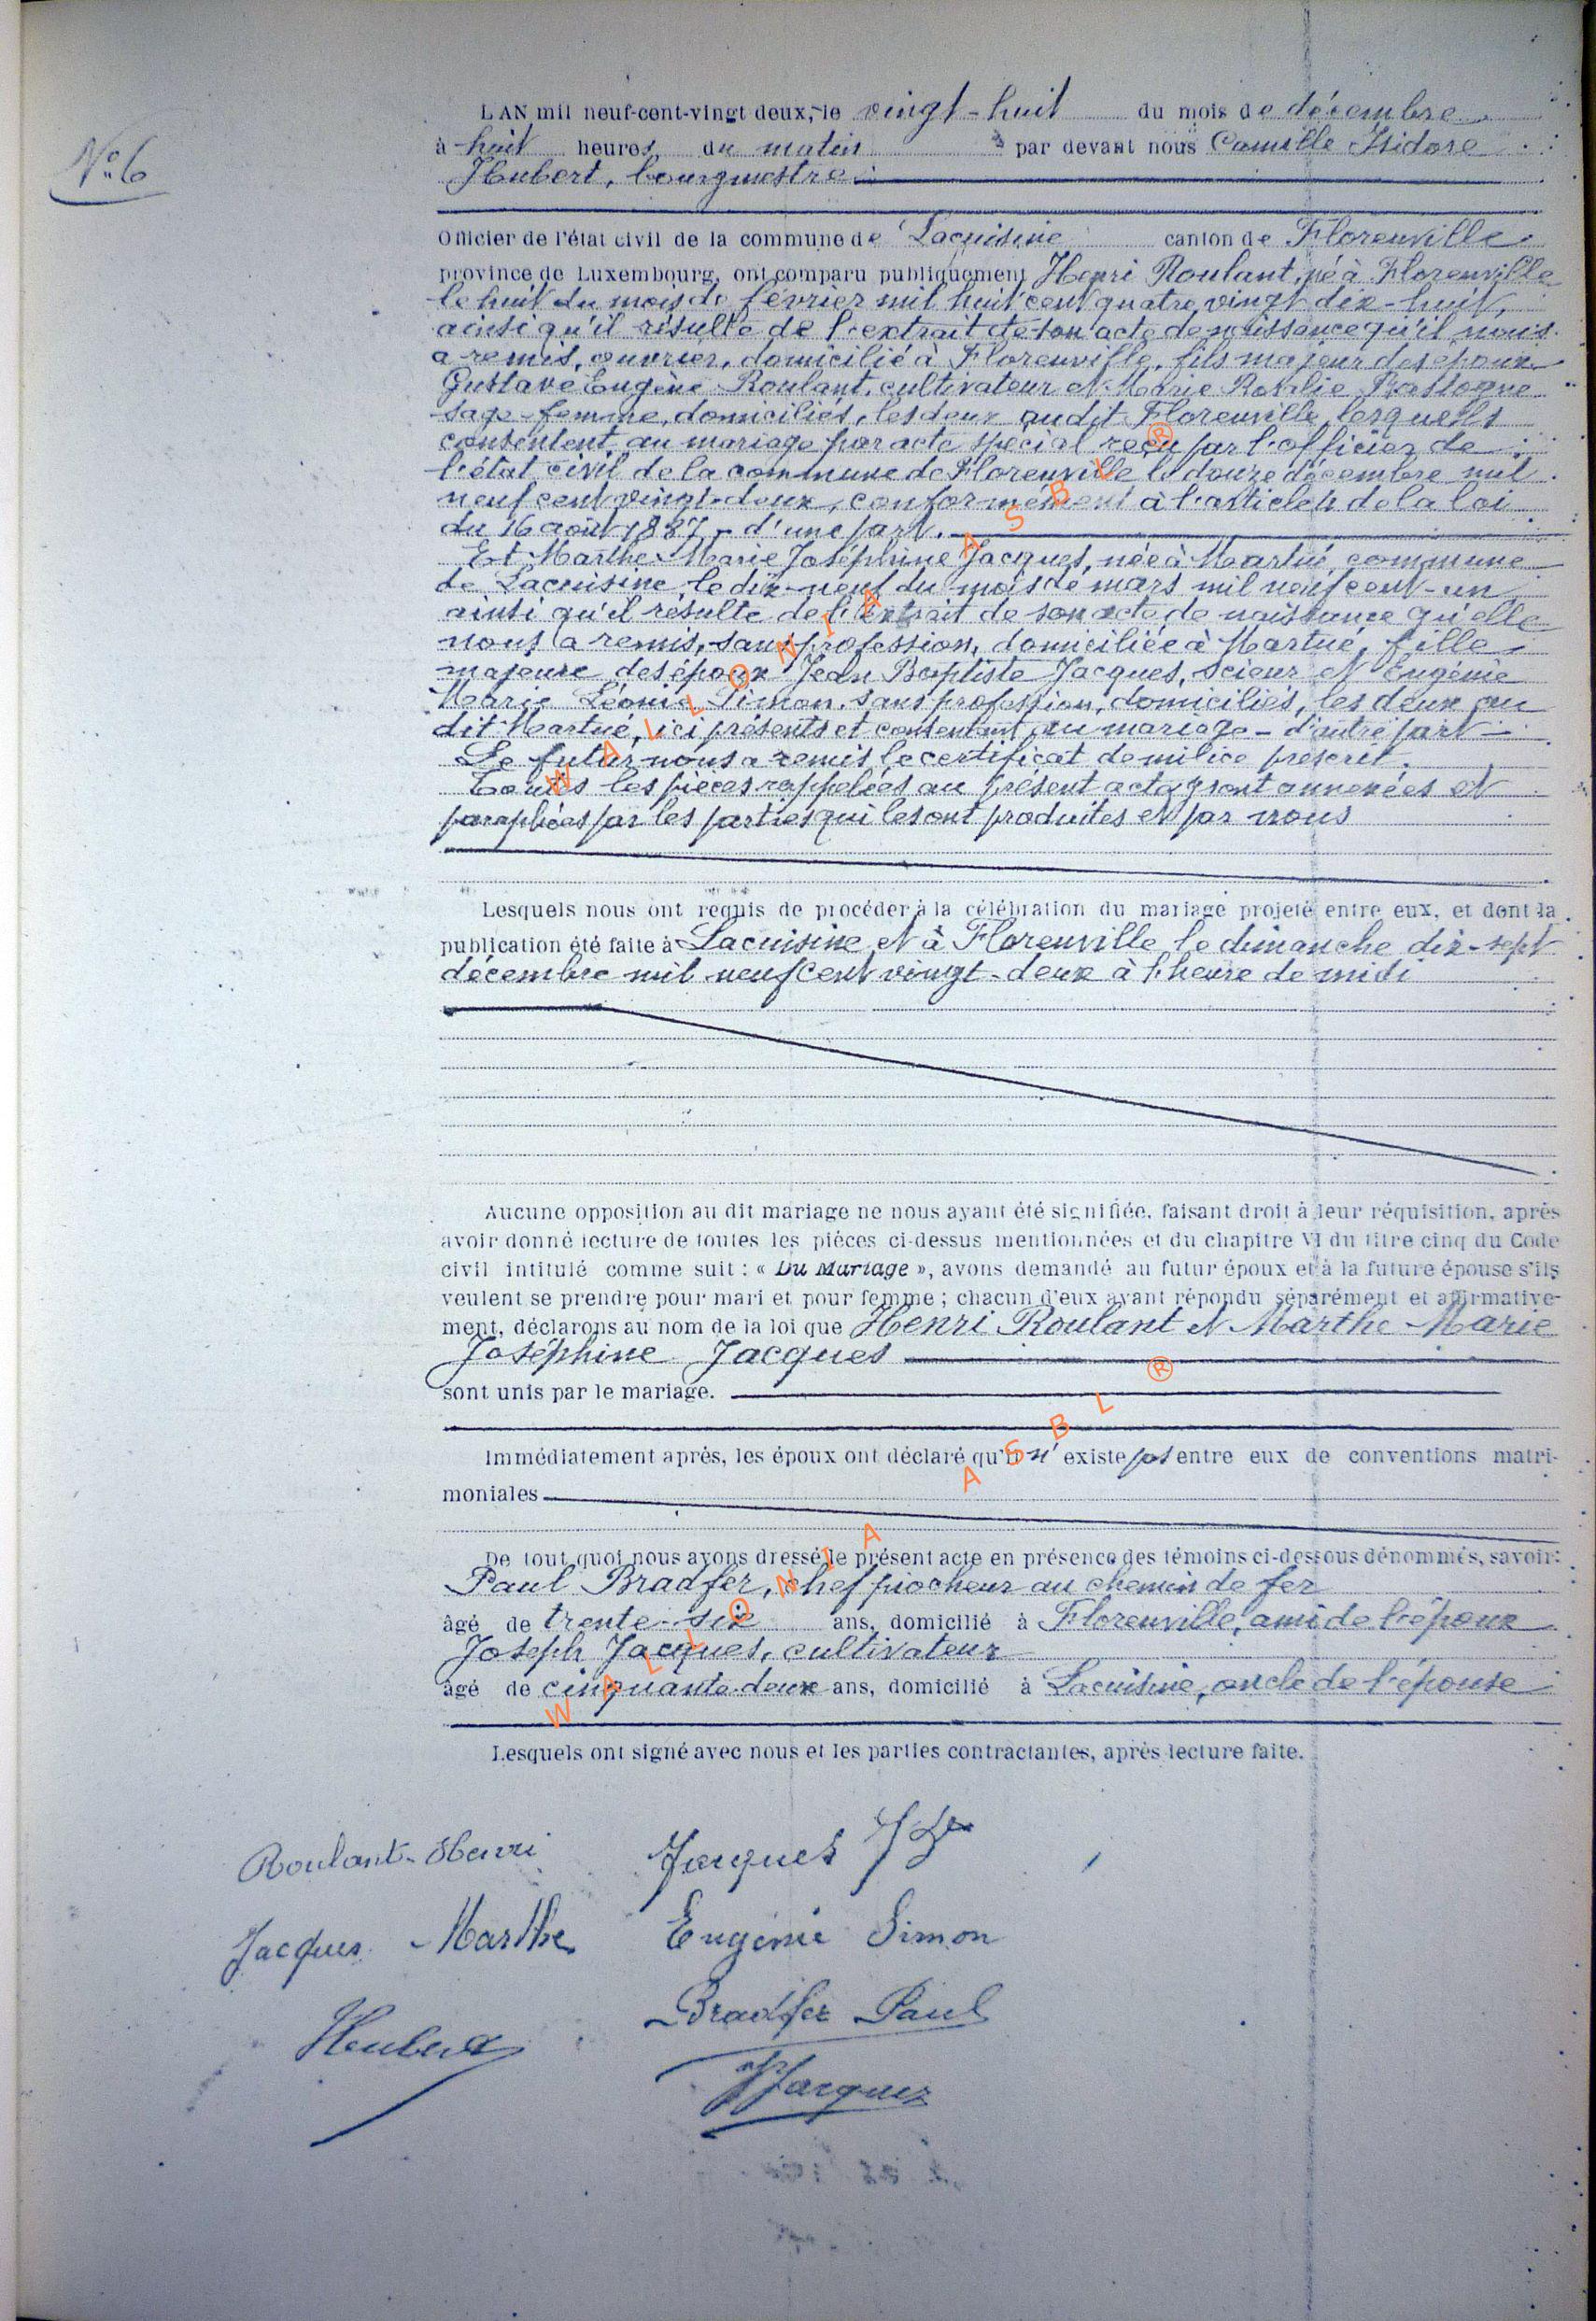 N° 6
L'AN mil neuf-cent-vingt deux, le vingt-huit du mois de décembre
à huit heures, du matin par devant nous Camille Isidore
Hubert, bourgmestre
Officier de l'état civil de la commune de Lacuisine canton de Florenville
province de Luxembourg, ont comparu publiquement Henri Roulant, né à Florenville
le huit du mois de février mil huit cent quatre vingt dix-huit,
ainsi qu'il résulte de l'extrait de son acte de naissance qu'il nous
a remis, ouvrier, domicilié à Florenville, fils majeur des époux
Gustave Eugène Roulant, cultivateur et Marie Rosalie Bastogne
sage-femme, domiciliés, les deux audit Florenville, lesquels
consentent au mariage par acte spécial reçu par l'officier de
l'état civil de la commune de Florenville le douze décembre mil
neuf cent vingt-deux, conformément à l'article de la loi
du 16 août 1887 - d'une part.
Et Marthe Marie Joséphine Jacques, née à Martué, commune
de Lacuisine, le dix-neuf du mois de mars mil neuf cent-un
ainsi qu'il résulte de l'extrait de son acte de naissance qu'elle
nous a remis, sans profession, domiciliée à Martué, fille
majeure des époux Jean Baptiste Jacques, scieur et Eugénie
Marie Léonie Simon, sans profession, domiciliés, les deux au
dit Martué, ici présents et consentant au mariage - d'autre part -
Le futur nous a remis le certificat de milice prescrit.
Toutes les pièces rappelées au présent acte sont annexées et
paraphées par les parties qui les ont produites et par nous
Lesquels nous ont requis de procéder à la célébration du mariage projeté entre eux, et dont la
publication été faite à Lacuisine et à Florenville le dimanche dix-sept
décembre mil neuf cent vingt-deux à l'heure de midi
Aucune opposition au dit mariage ne nous ayant été signifiée, faisant droit à leur réquisition, après
avoir donné lecture de toutes les pièces ci-dessus mentionnées et du chapitre VI du titre cinq du Code
civil intitulé comme suit : « Du Mariage », avons demandé au futur époux et à la future épouse s'ils
veulent se prendre pour mari et pour femme ; chacun d'eux ayant répondu séparément et affirmative-
ment, déclarons au nom de la loi que Henri Roulant et Marthe Marie
Joséphine Jacques
sont unis par le mariage.
Immédiatement après, les époux ont déclaré qu'il n'existe pas entre eux de conventions matri-
moniales
De tout quoi nous avons dressé le présent acte en présence des témoins ci-dessous dénommés, savoir:
Paul Bradfer, chef piocheur au chemin de fer
âgé de trente-six ans, domicilié à Florenville, ami de l'époux
Joseph Jacques, cultivateur
âgé de cinquante-deux ans, domicilié à Lacuisine, oncle de l'épouse
Lesquels ont signé avec nous et les parties contractantes, après lecture faite.
Roulant Henri Jacques JB
Jacques Marthe Eugénie Simon
Hubert Bradfer Paul
J Jacques
WALLONIA ASBL ®
WALLONIA ASBL ®